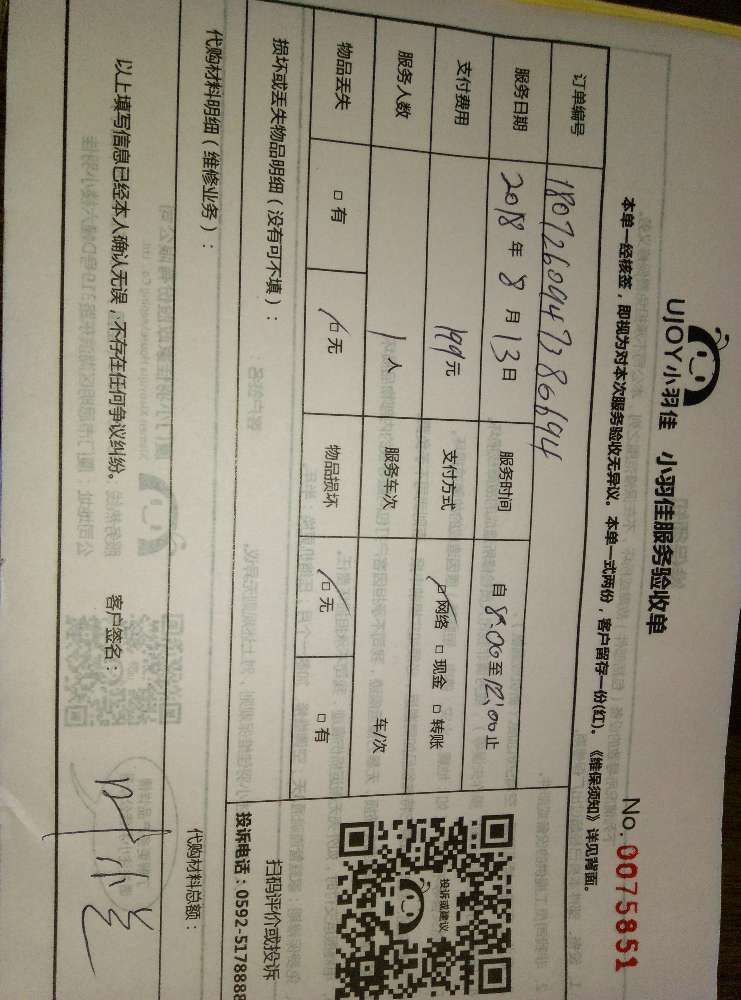 UJOY小羽佳 小羽佳服务验收单
No. 0075851
本单一经核签，即视为对本次服务验收无异议。本单一式两份，客户留存一份(红)。《维保须知》详见背面。
订单编号
服务日期 2018 年 8 月 13 日 服务时间 自 8:00 至 12:00 止
支付费用 199 元 支付方式 □ 网络 □ 现金 □ 转账
服务人数 1 人 服务车次 车/次
物品丢失 □ 有 □ 无 物品损坏 □ 无 □ 有
损坏或丢失物品明细（没有可不填）：
投诉或建议
扫码评价或投诉
投诉电话：0592-5178888
代购材料明细（维修业务）：
代购材料总额：
以上填写信息已经本人确认无误，不存在任何争议纠纷。 客户签名：